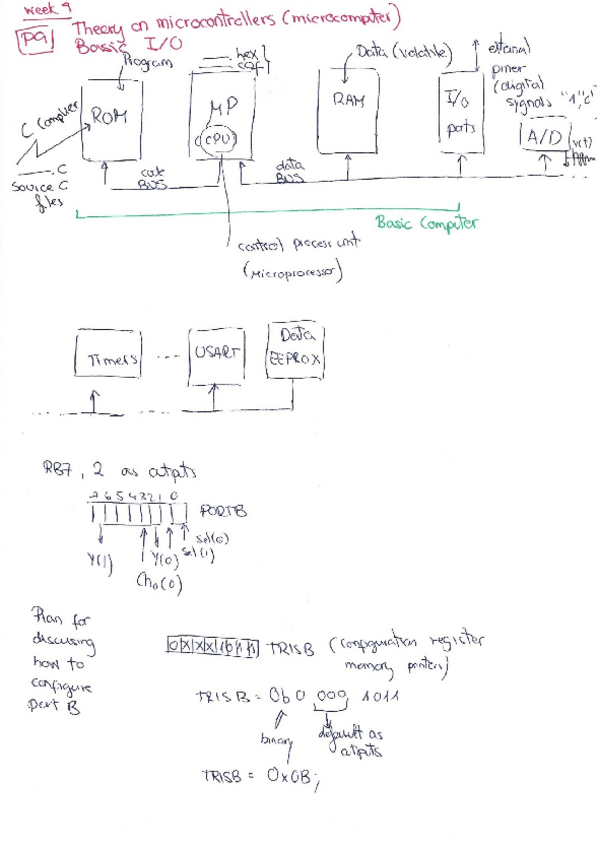 week 9
P9 Theory on microcontrollers (microcomputer)
Bassic I/O
Program
hex
cof
Data (volatile)
external
(digital
signals "1","0")
C Compiler
ROM
MP
(CPU)
RAM
I/O
ports
A/D
v(t)
.C
Source C
files
BUS
data
BUS
Basic Computer
control process unit
(Microprocessor)
Timers
...
USART
Data
EEPROX
RB7, 2 as outputs
7 6 5 4 3 2 1 0
PORTB
Sel(0)
Y(1)
Y(0)
Sel(1)
Ch0(0)
Plan for
discusing
how to
configure
port B
0 X X X 1 0 1 1 TRISB (Configuration register
memory pointers)
TRISB = 0b 0 000 1011
binary
default as
outputs
TRISB = 0x0B;